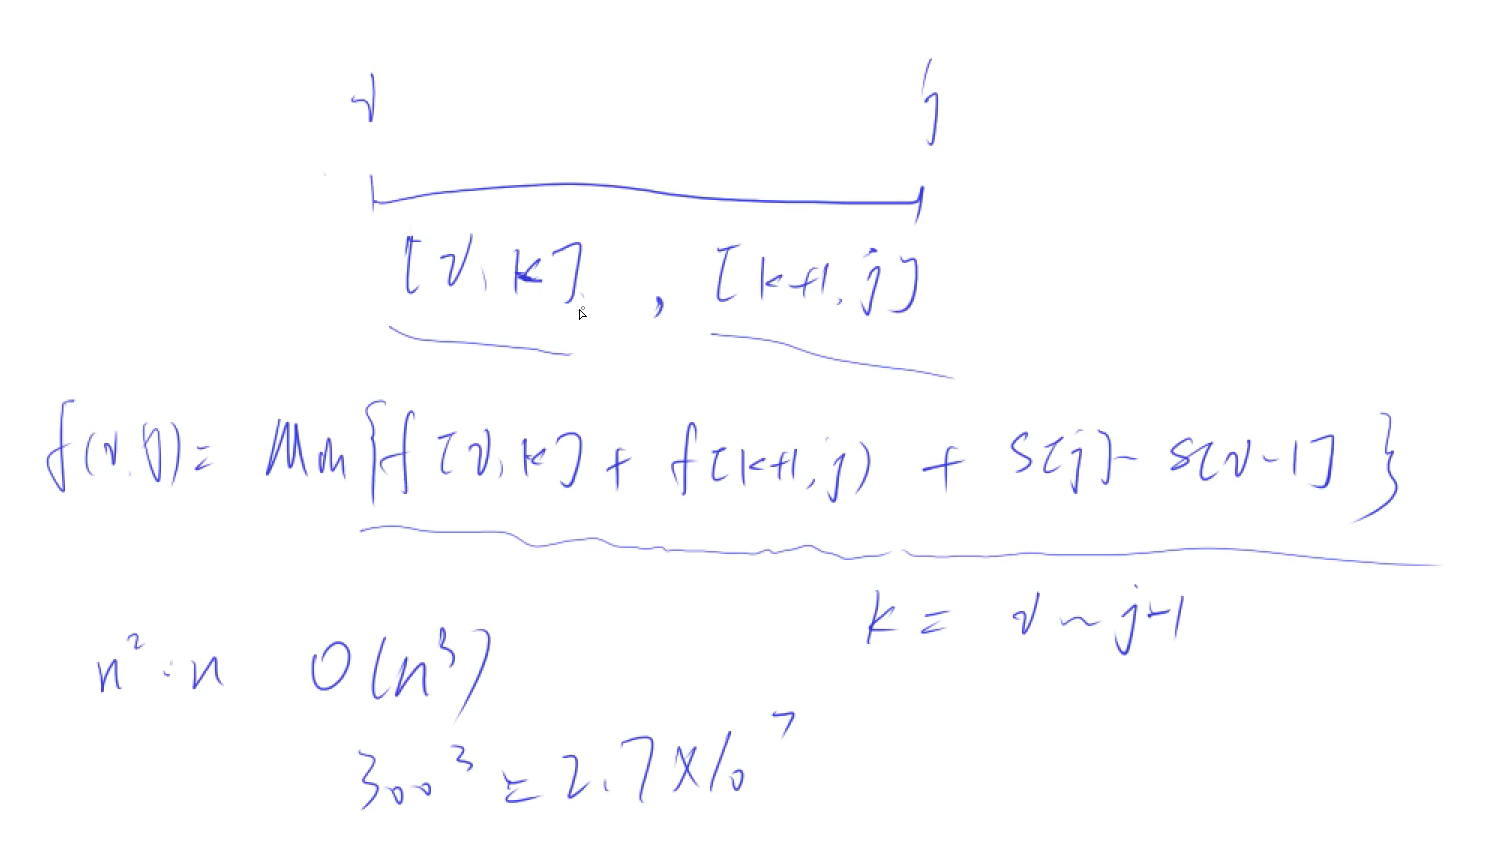 i j
[i, k] , [k+1, j]
f(i, j) = Min{f[i, k] + f[k+1, j) + S[j] - S[i-1] }
k = i ~ j-1
n² · n O(n³)
300³ = 2.7 × 10⁷